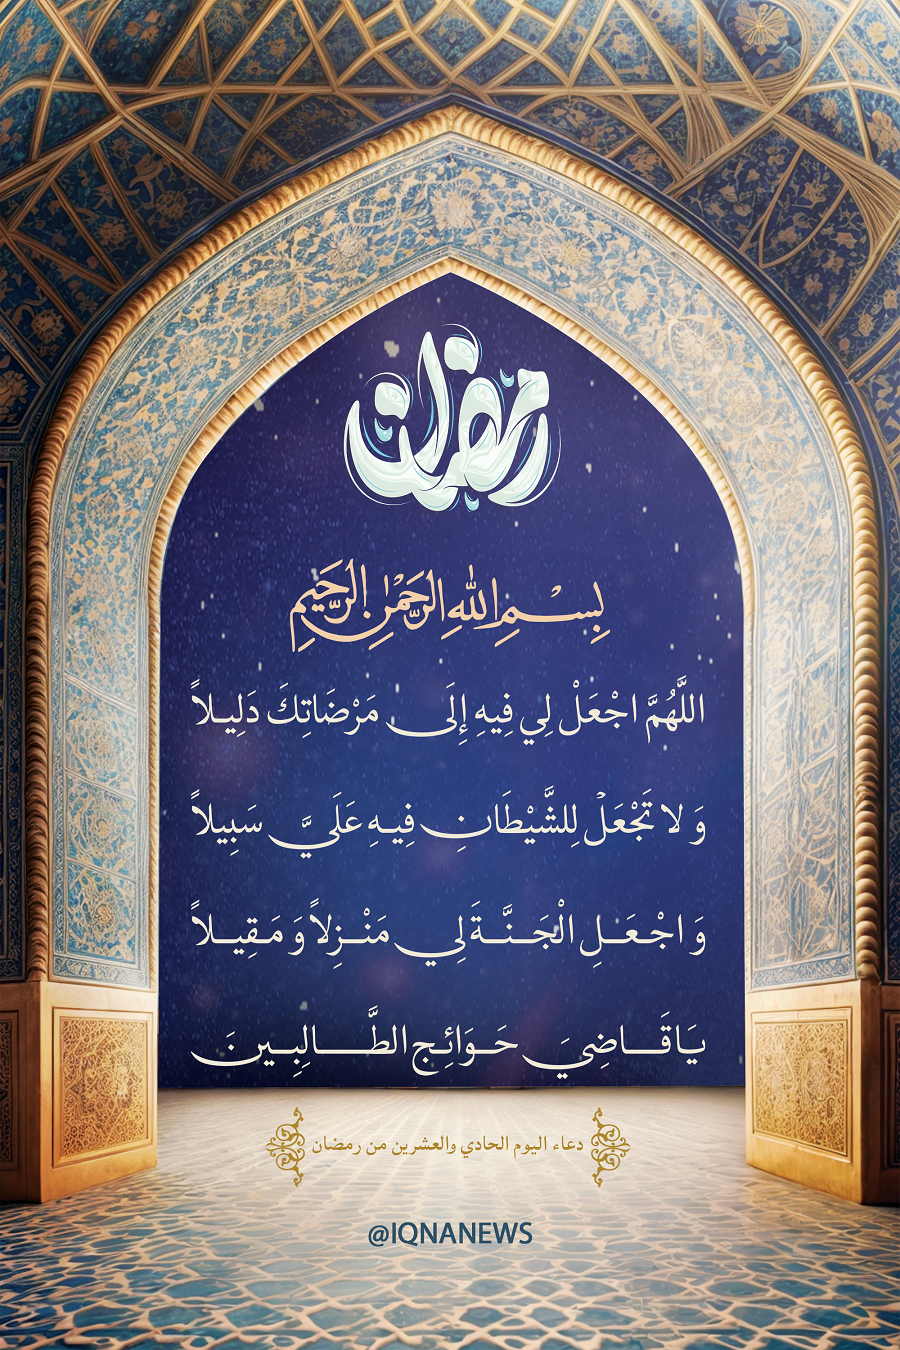 رمضان
بِسْمِ اللهِ الرَّحْمٰنِ الرَّحِيمِ
اللَّهُمَّ اجْعَلْ لِي فِيهِ إِلَى مَرْضَاتِكَ دَلِيلاً
وَ لا تَجْعَلْ لِلشَّيْطَانِ فِيهِ عَلَيَّ سَبِيلاً
وَ اجْعَلِ الْجَنَّةَ لِي مَنْزِلاً وَ مَقِيلاً
يَا قَاضِيَ حَوَائِجِ الطَّالِبِينَ
دعاء اليوم الحادي والعشرين من رمضان
@IQNANEWS